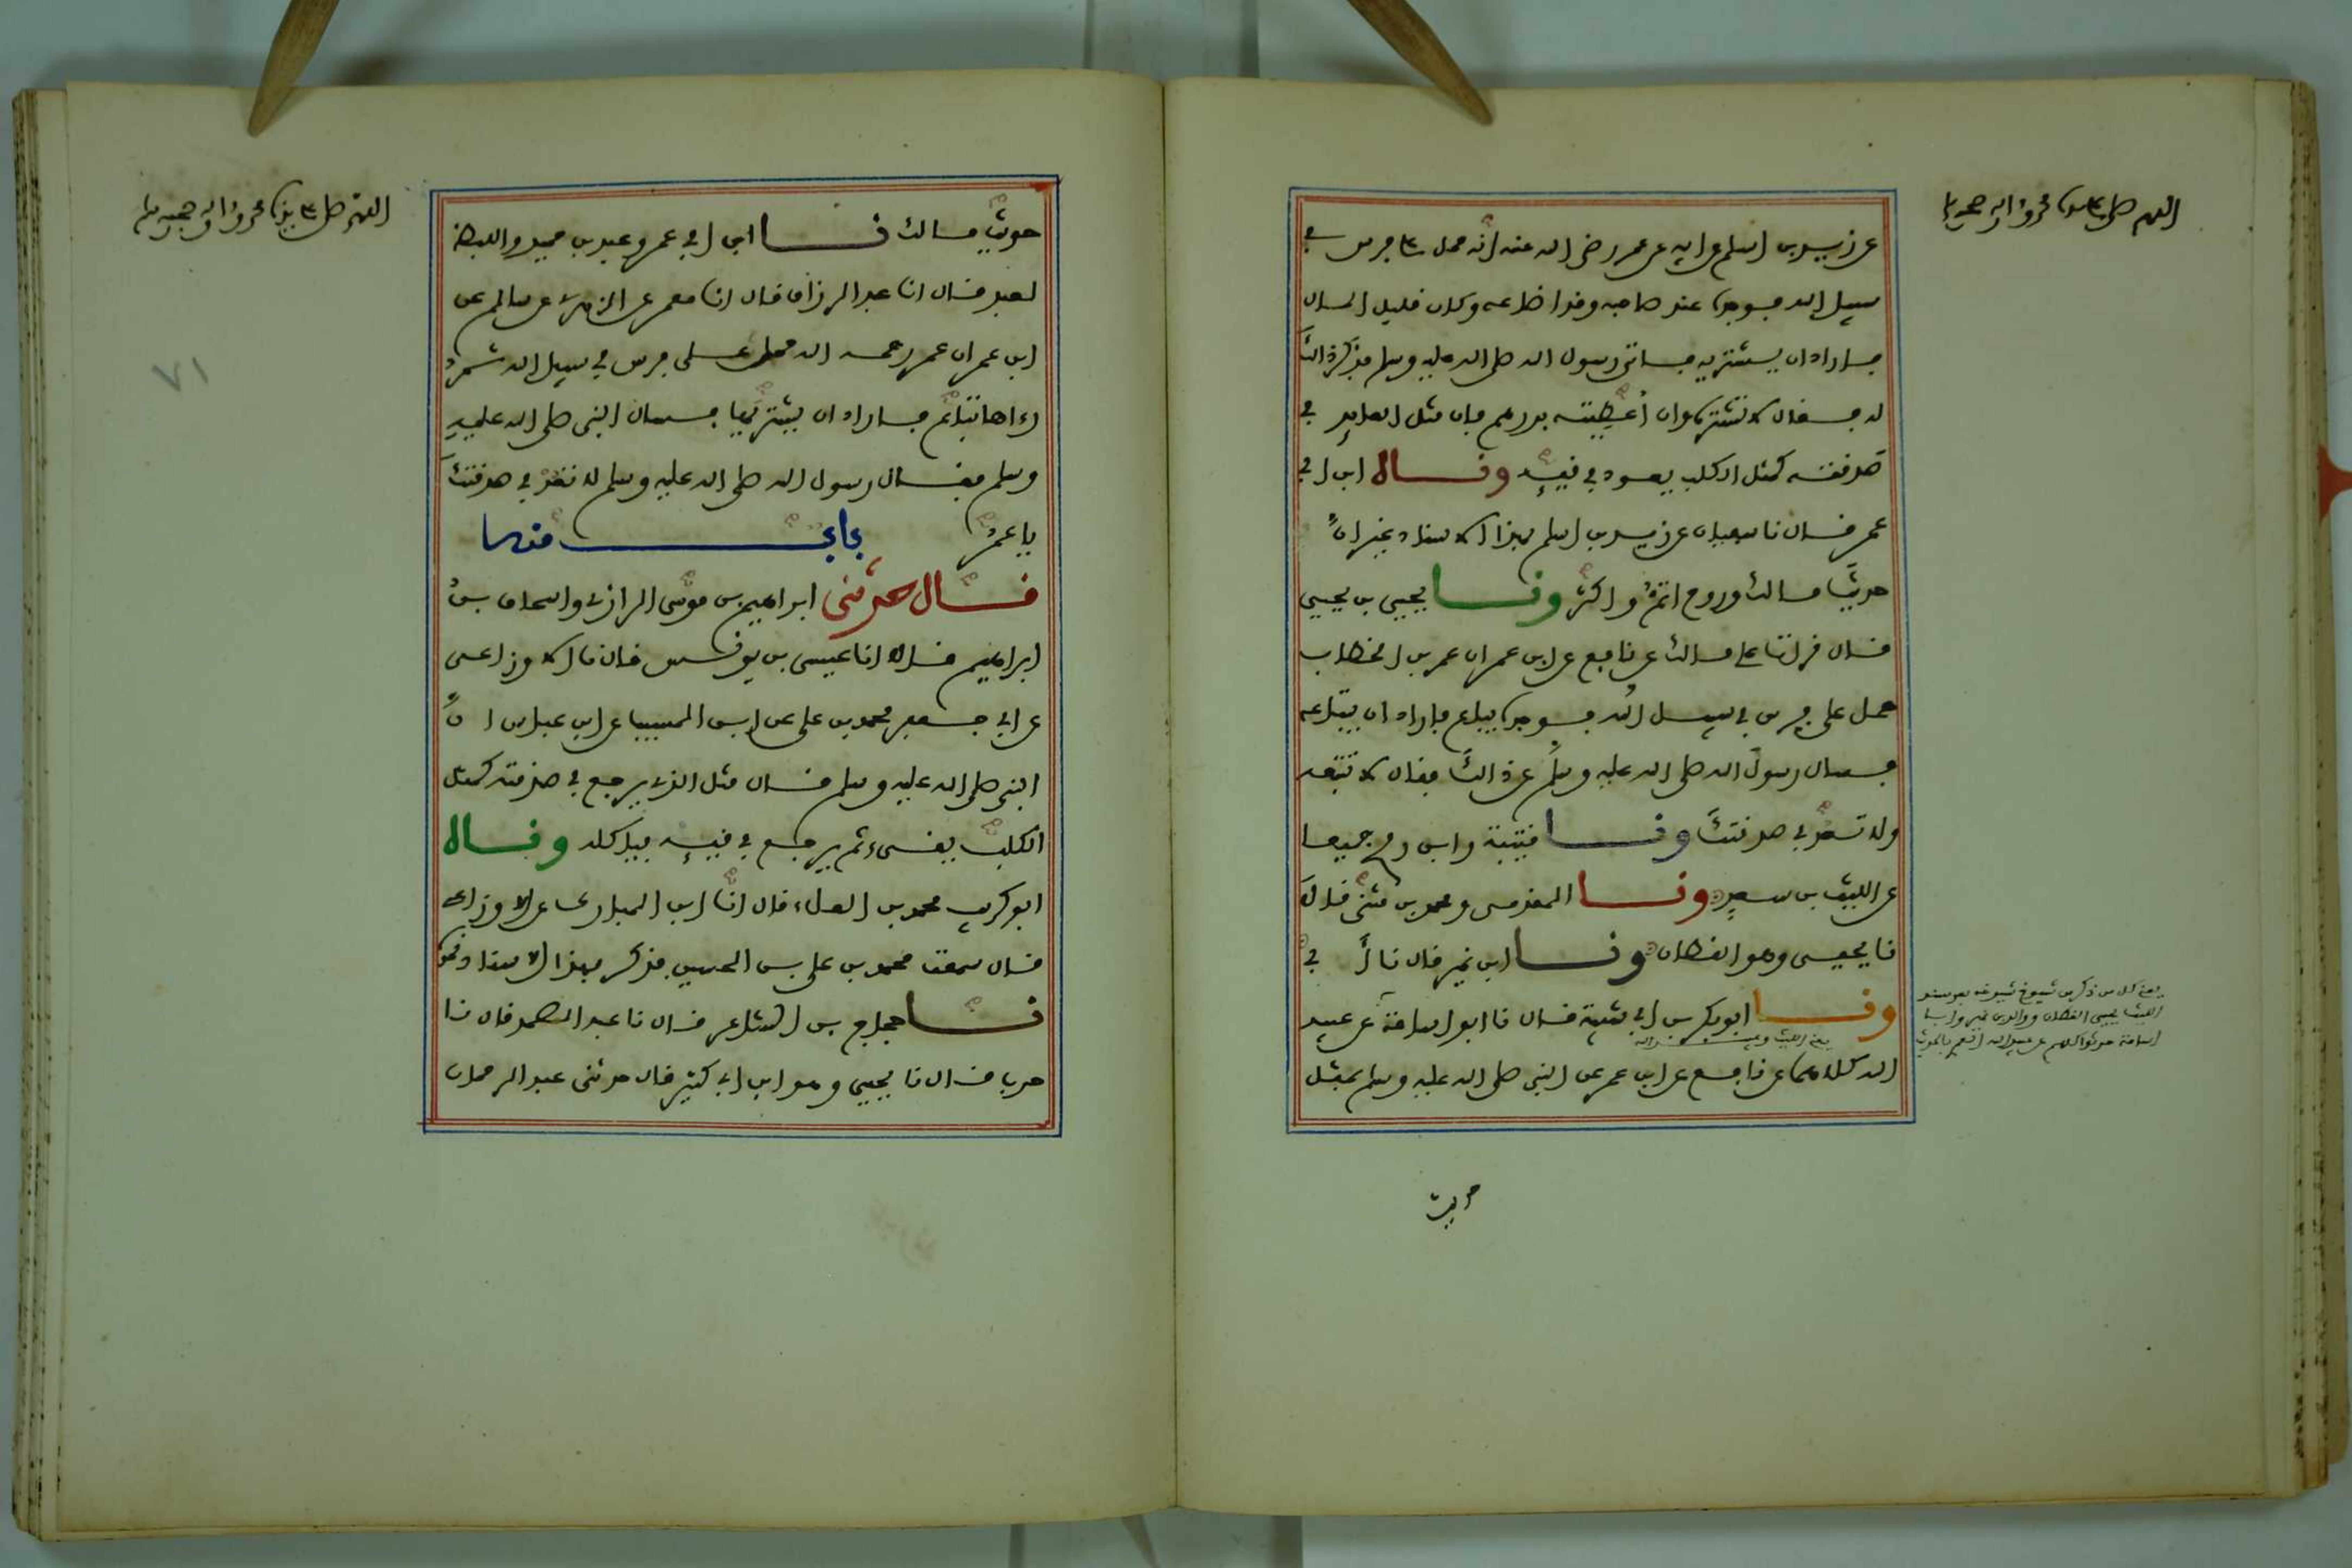 اللهم صل على سيدنا محمد وءاله وصحبه
عن زيد بن اسلم عن ابيه عن عمر رضي الله عنه انه حمل على فرس في
سبيل الله فوجده عند صاحبه وقد اضاعه وكان قليل المال
فاراد ان يشتريه فاتى رسول الله صلى الله عليه وسلم فذكر ذالك
له فقال لا تشتره وان أعطيته بدرهم فان مثل العايد في
صدقته كمثل الكلب يعود في قيئه وناه ابن ابي
عمر قال نا سفيان عن زيد بن اسلم بهذا الاسناد غير ان
حديث مالك وروح اتم واكثر ونا يحيى بن يحيى
قال قرات على مالك عن نافع عن ابن عمر ان عمر بن الخطاب
حمل على فرس في سبيل الله فوجده يباع فاراد ان يبتاعه
فسال رسول الله صلى الله عليه وسلم عن ذالك فقال لا تبتعه
ولا تعد في صدقتك ونا قتيبة وابن رمح جميعا
عن الليث بن سعد ونا المقدمي ومحمد بن مثنى قالا
نا يحيى وهو القطان ونا ابن نمير قال نا أبي
ونا ابو بكر بن ابي شيبة قال نا ابو اسامة عن عبيد
الله كلاهما عن نافع عن ابن عمر عن النبي صلى الله عليه وسلم بمثل
يعني الليث وعبيد الله
يعني كل من ذكر من شيوخ شيوخه بعد سند
الليث يحيى القطان ووالد ابن نمير وابا
اسامة حدثوا كلهم عن عبيد الله
حديث
اللهم صل على سيدنا محمد وءاله وصحبه
٧١
حديث مالك نا ابن ابي عمر وعبد بن حميد واللفظ
لعبد قال انا عبد الرزاق قال انا معمر عن الزهري عن سالم عن
ابن عمر ان عمر رحمه الله حمل على فرس في سبيل الله ثم
رءاها تباع فاراد ان يشتريها فسال النبي صلى الله عليه
وسلم فقال رسول الله صلى الله عليه وسلم لا تعد في صدقتك
يا عمر باب منه
قال حدثني ابراهيم بن موسى الرازي واسحاق بن
ابراهيم قالا انا عيسى بن يونس قال نا الاوزاعي
عن ابي جعفر محمد بن علي عن ابن المسيب عن ابن عباس ان
النبي صلى الله عليه وسلم قال مثل الذي يرجع في صدقته كمثل
الكلب يقيء ثم يرجع في قيئه فياكله وناه
ابو كريب محمد بن العلاء قال انا ابن المبارك عن الاوزاعي
قال سمعت محمد بن علي بن الحسين فذكر بهذا الاسناد نحوه
نا حجاج بن الشاعر قال نا عبد الصمد قال نا
حرب قال نا يحيى وهو ابن ابي كثير قال حدثني عبد الرحمان